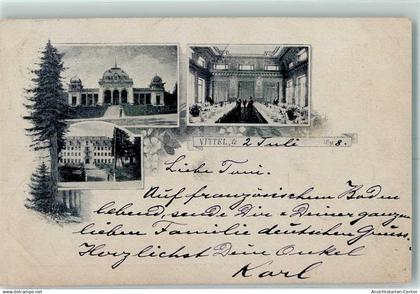 VITTEL, le 2 Juli 1898.
Liebe Toni.
Auf französischem Boden
lebend, sende Dir u Deiner ganzen
lieben Familie deutschen Gruss.
Herzlichst Dein Onkel
Karl
www.ansichtskarten-center.de
Ansichtskarten-Center